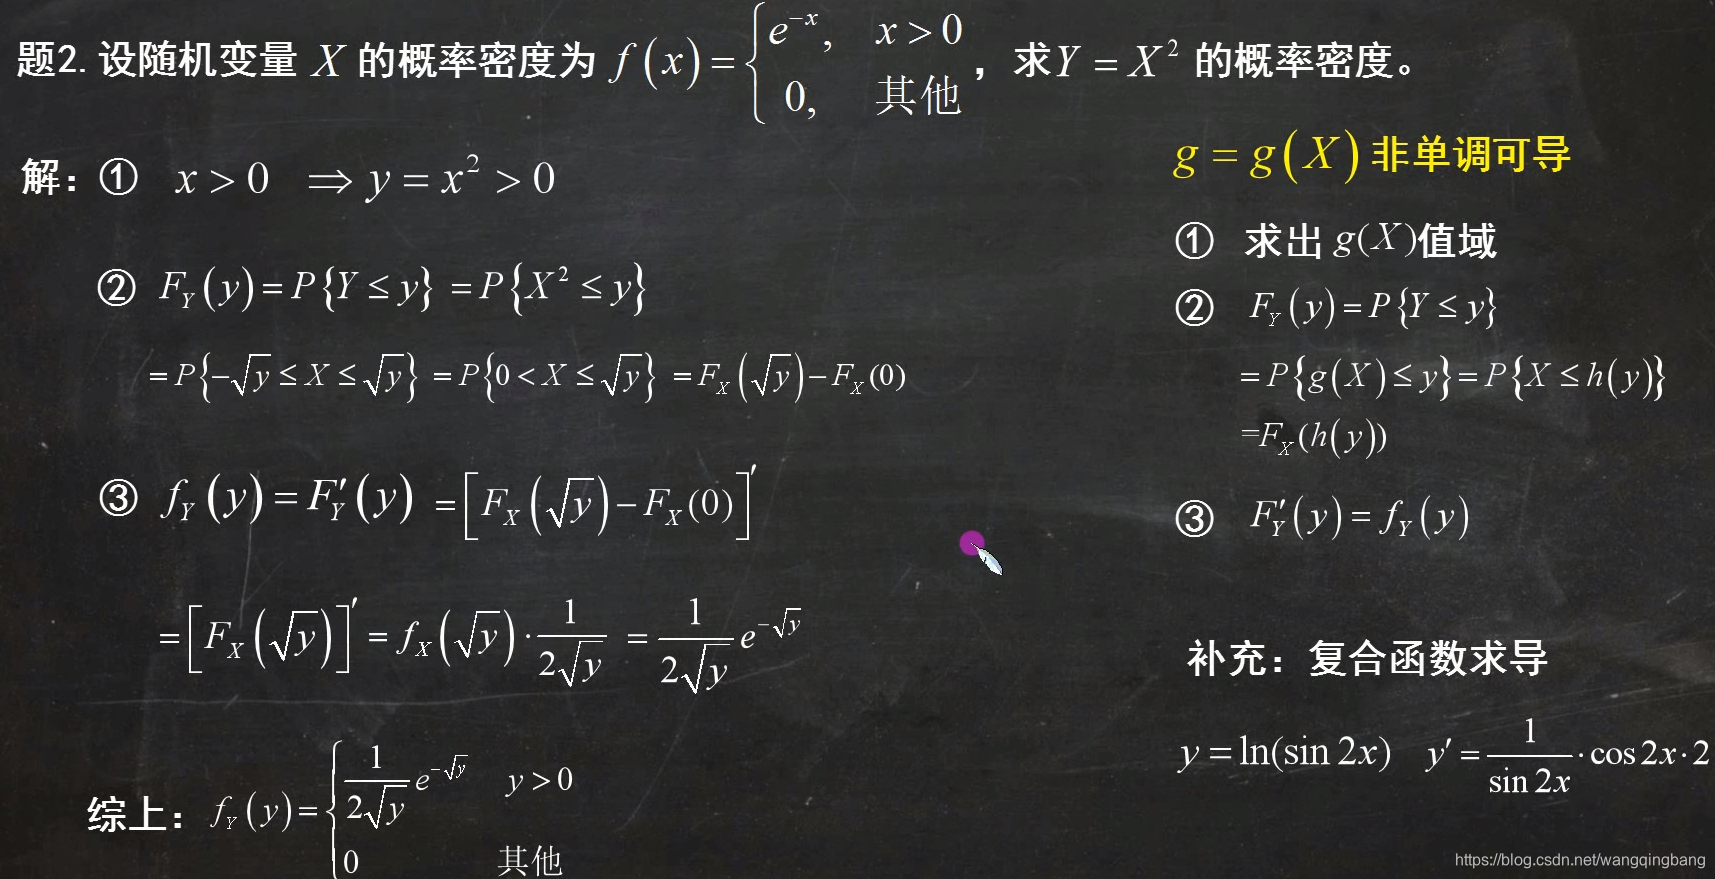 题2. 设随机变量 X 的概率密度为 f(x)={e^{-x}, x>0; 0, 其他 ，求Y=X² 的概率密度。
解：① x>0 ⇒ y=x²>0
② F_Y(y)=P{Y≤y} =P{X²≤y}
=P{-√y≤X≤√y} =P{0<X≤√y} =F_X(√y)-F_X(0)
③ f_Y(y)=F′_Y(y) =[F_X(√y)-F_X(0)]′
=[F_X(√y)]′ =f_X(√y)·1/(2√y) =1/(2√y) e^{-√y}
综上：f_Y(y)={1/(2√y) e^{-√y} y>0; 0 其他
g=g(X) 非单调可导
① 求出 g(X)值域
② F_Y(y)=P{Y≤y}
=P{g(X)≤y}=P{X≤h(y)}
=F_X(h(y))
③ F′_Y(y)=f_Y(y)
补充：复合函数求导
y=ln(sin 2x) y′=1/(sin 2x)·cos2x·2
https://blog.csdn.net/wangqingbang